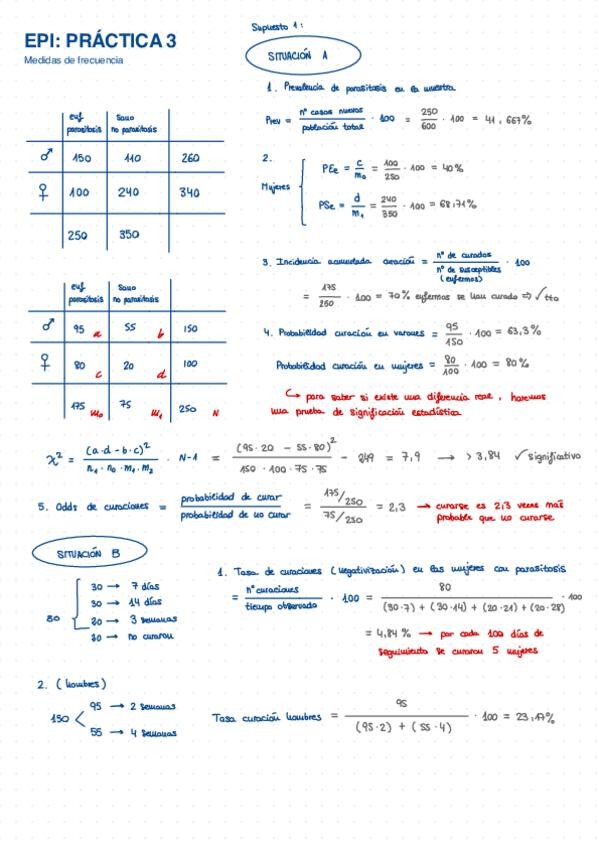 EPI: PRÁCTICA 3
Medidas de frecuencia
Supuesto 1:
SITUACIÓN A
1. Prevalencia de parasitosis en la muestra
Prev = nº casos nuevos / población total · 100 = 250 / 600 · 100 = 41,667%
enf parasitosis | Sano no parasitosis
♂ 150 110 260
♀ 100 240 340
250 350
2.
Mujeres
PEe = c / m₀ = 100 / 250 · 100 = 40%
PSe = d / m₁ = 240 / 350 · 100 = 68,71%
3. Incidencia acumulada curación = nº de curados / nº de susceptibles (enfermos) · 100
= 175 / 250 · 100 = 70% enfermos se han curado ⇒ ✓ tto
enf parasitosis | Sano no parasitosis
♂ 95 a 55 b 150
♀ 80 c 20 d 100
175 m₀ 75 m₁ 250 N
4. Probabilidad curación en varones = 95 / 150 · 100 = 63,3%
Probabilidad curación en mujeres = 80 / 100 · 100 = 80%
↪ para saber si existe una diferencia real, haremos
una prueba de significación estadística
χ² = (a·d - b·c)² / n₁ · n₀ · m₁ · m₂ · N-1 = (95·20 - 55·80)² / 150 · 100 · 75 · 75 - 249 = 7,9 → > 3,84 ✓ significativo
5. Odds de curaciones = probabilidad de curar / probabilidad de no curar = 175/250 / 75/250 = 2,3 → curarse es 2,3 veces más
probable que no curarse.
SITUACIÓN B
80
30 → 7 días
30 → 14 días
20 → 3 semanas
20 → no curaron
1. Tasa de curaciones (negativización) en las mujeres con parasitosis
= nº curaciones / tiempo observado · 100 = 80 / (30·7) + (30·14) + (20·21) + (20·28) · 100
= 4,84% → por cada 100 días de
seguimiento se curaron 5 mujeres
2. (hombres)
150
95 → 2 semanas
55 → 4 semanas
Tasa curación hombres = 95 / (95·2) + (55·4) · 100 = 23,17%